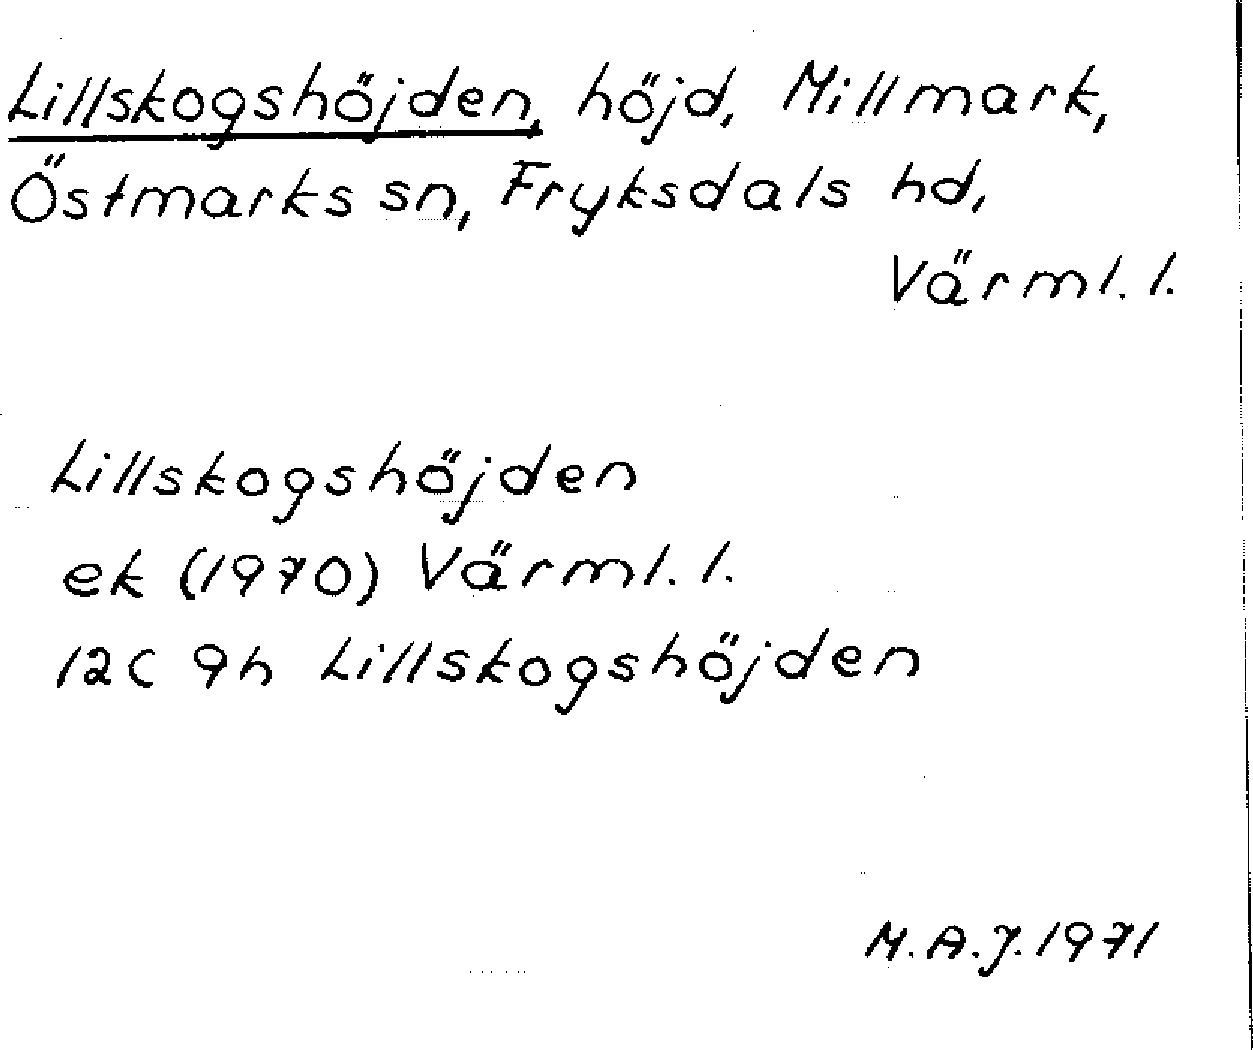 Lillskogshöjden, höjd, Millmark,
Östmarks sn, Fryksdals hd,
Värml. l.
Lillskogshöjden
ek (1970) Värml. l.
12C 9h Lillskogshöjden
M.A.J. 1971